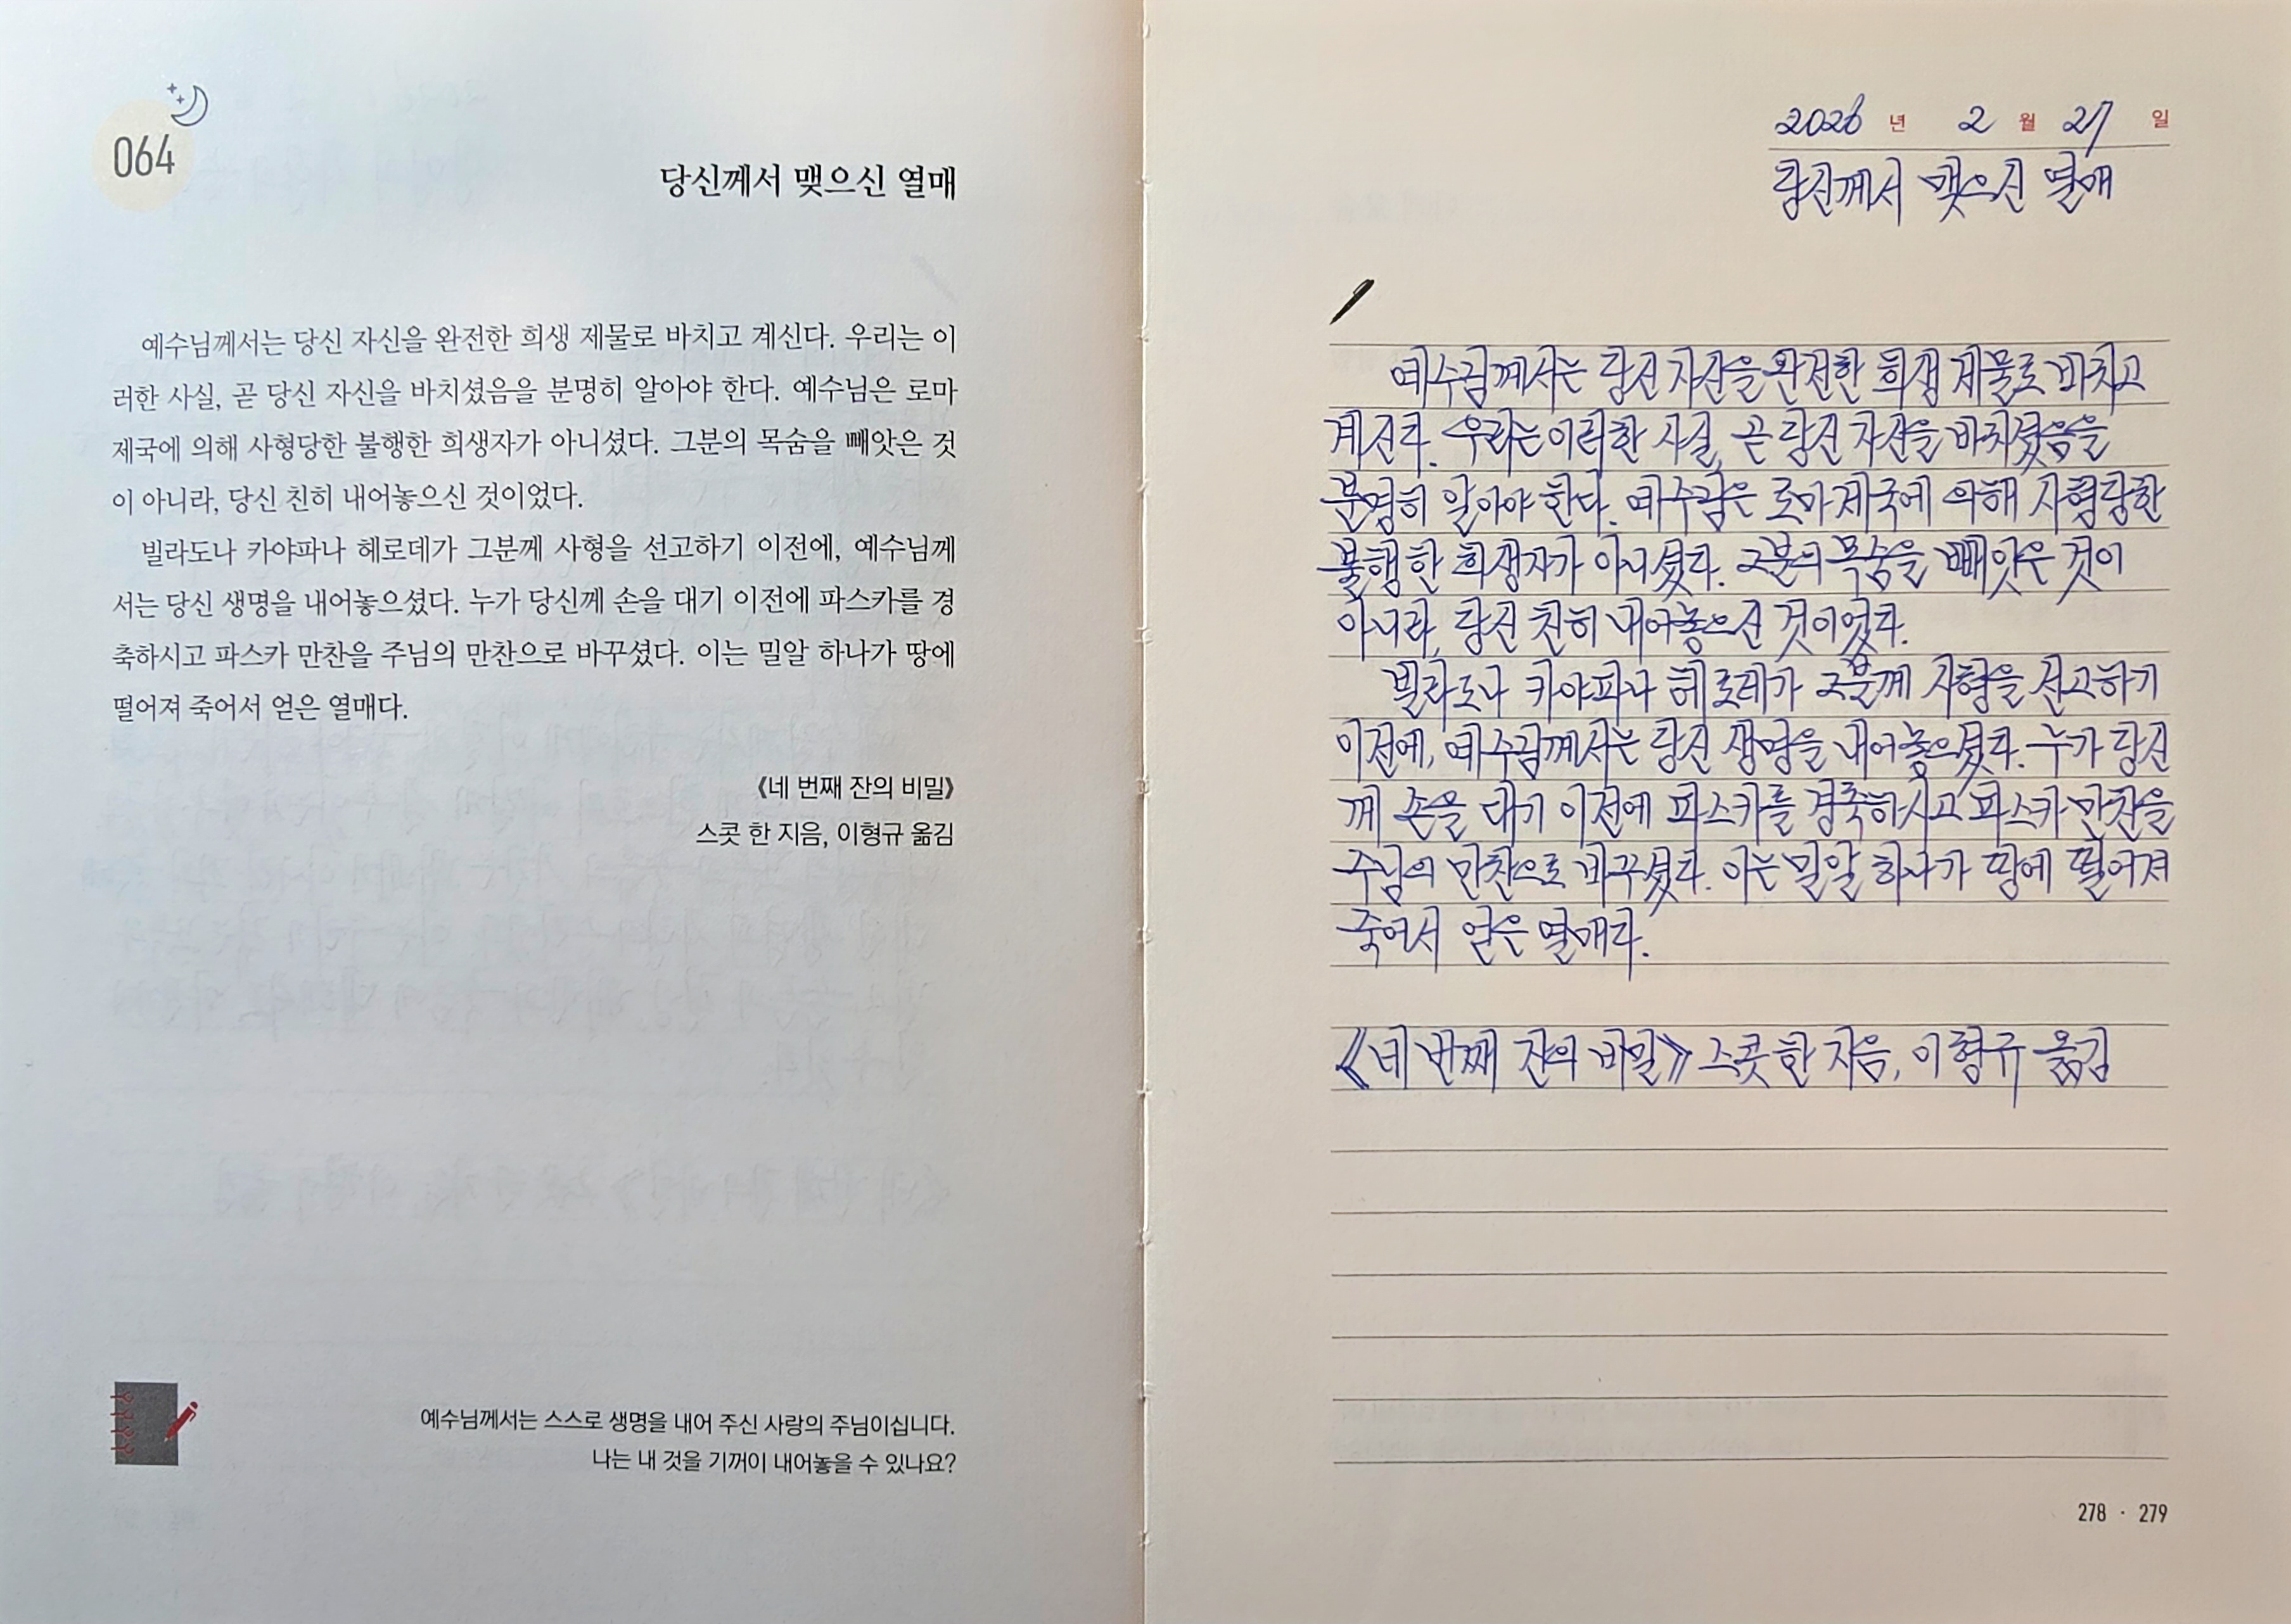 064
당신께서 맺으신 열매
예수님께서는 당신 자신을 완전한 희생 제물로 바치고 계신다. 우리는 이
러한 사실, 곧 당신 자신을 바치셨음을 분명히 알아야 한다. 예수님은 로마
제국에 의해 사형당한 불행한 희생자가 아니셨다. 그분의 목숨을 빼앗은 것
이 아니라, 당신 친히 내어놓으신 것이었다.
빌라도나 카야파나 헤로데가 그분께 사형을 선고하기 이전에, 예수님께
서는 당신 생명을 내어놓으셨다. 누가 당신께 손을 대기 이전에 파스카를 경
축하시고 파스카 만찬을 주님의 만찬으로 바꾸셨다. 이는 밀알 하나가 땅에
떨어져 죽어서 얻은 열매다.
《네 번째 잔의 비밀》
스콧 한 지음, 이형규 옮김
예수님께서는 스스로 생명을 내어 주신 사랑의 주님이십니다.
나는 내 것을 기꺼이 내어놓을 수 있나요?
2026 년 2 월 27 일
당신께서 맺으신 열매
예수님께서는 당신 자신을 완전한 희생 제물로 바치고
계신다. 우리는 이러한 사실, 곧 당신 자신을 바치셨음을
분명히 알아야 한다. 예수님은 로마 제국에 의해 사형당한
불행한 희생자가 아니셨다. 그분의 목숨을 빼앗은 것이
아니라, 당신 친히 내어놓으신 것이었다.
빌라도나 카야파나 헤로데가 그분께 사형을 선고하기
이전에, 예수님께서는 당신 생명을 내어놓으셨다. 누가 당신
께 손을 대기 이전에 파스카를 경축하시고 파스카 만찬을
주님의 만찬으로 바꾸셨다. 이는 밀알 하나가 땅에 떨어져
죽어서 얻은 열매다.
《네 번째 잔의 비밀》 스콧 한 지음, 이형규 옮김
278 · 279